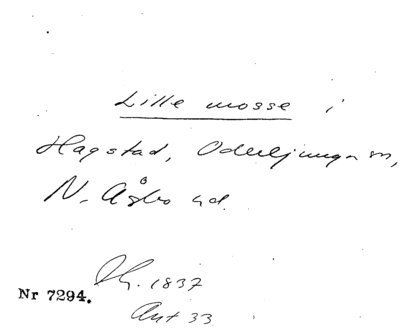 Lille mosse i
Hagstad, Oderljunga sn,
N. Åsbo hd.
Th. 1837
Nr 7294.
Ant 33